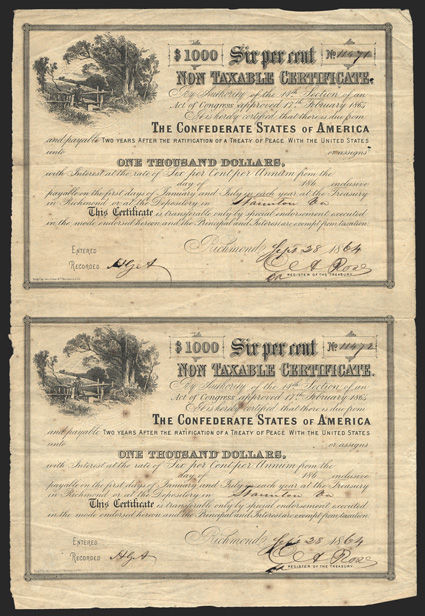 $1000 Six per cent No. 11671
NON TAXABLE CERTIFICATE.
By Authority of the 14th Section of an
Act of Congress approved 17th February 1864
It is hereby certified that there is due from
THE CONFEDERATE STATES OF AMERICA
and payable TWO YEARS AFTER THE RATIFICATION OF A TREATY OF PEACE WITH THE UNITED STATES
unto or assigns
ONE THOUSAND DOLLARS,
with Interest at the rate of Six per Cent per Annum from the
day of 186 inclusive
payable on the first days of January and July in each year at the Treasury
in Richmond or at the Depository in Staunton Va
This Certificate is transferable only by special endorsement executed
in the mode endorsed hereon and the Principal and Interest are exempt from taxation.
Richmond, Sept 28 1864
ENTERED
RECORDED
A. Rose
REGISTER OF THE TREASURY
$1000 Six per cent No. 11672
NON TAXABLE CERTIFICATE.
By Authority of the 14th Section of an
Act of Congress approved 17th February 1864
It is hereby certified that there is due from
THE CONFEDERATE STATES OF AMERICA
and payable TWO YEARS AFTER THE RATIFICATION OF A TREATY OF PEACE WITH THE UNITED STATES
unto or assigns
ONE THOUSAND DOLLARS,
with Interest at the rate of Six per Cent per Annum from the
day of 186 inclusive
payable on the first days of January and July in each year at the Treasury
in Richmond or at the Depository in Staunton Va
This Certificate is transferable only by special endorsement executed
in the mode endorsed hereon and the Principal and Interest are exempt from taxation.
Richmond, Sept 28 1864
ENTERED
RECORDED
A. Rose
REGISTER OF THE TREASURY